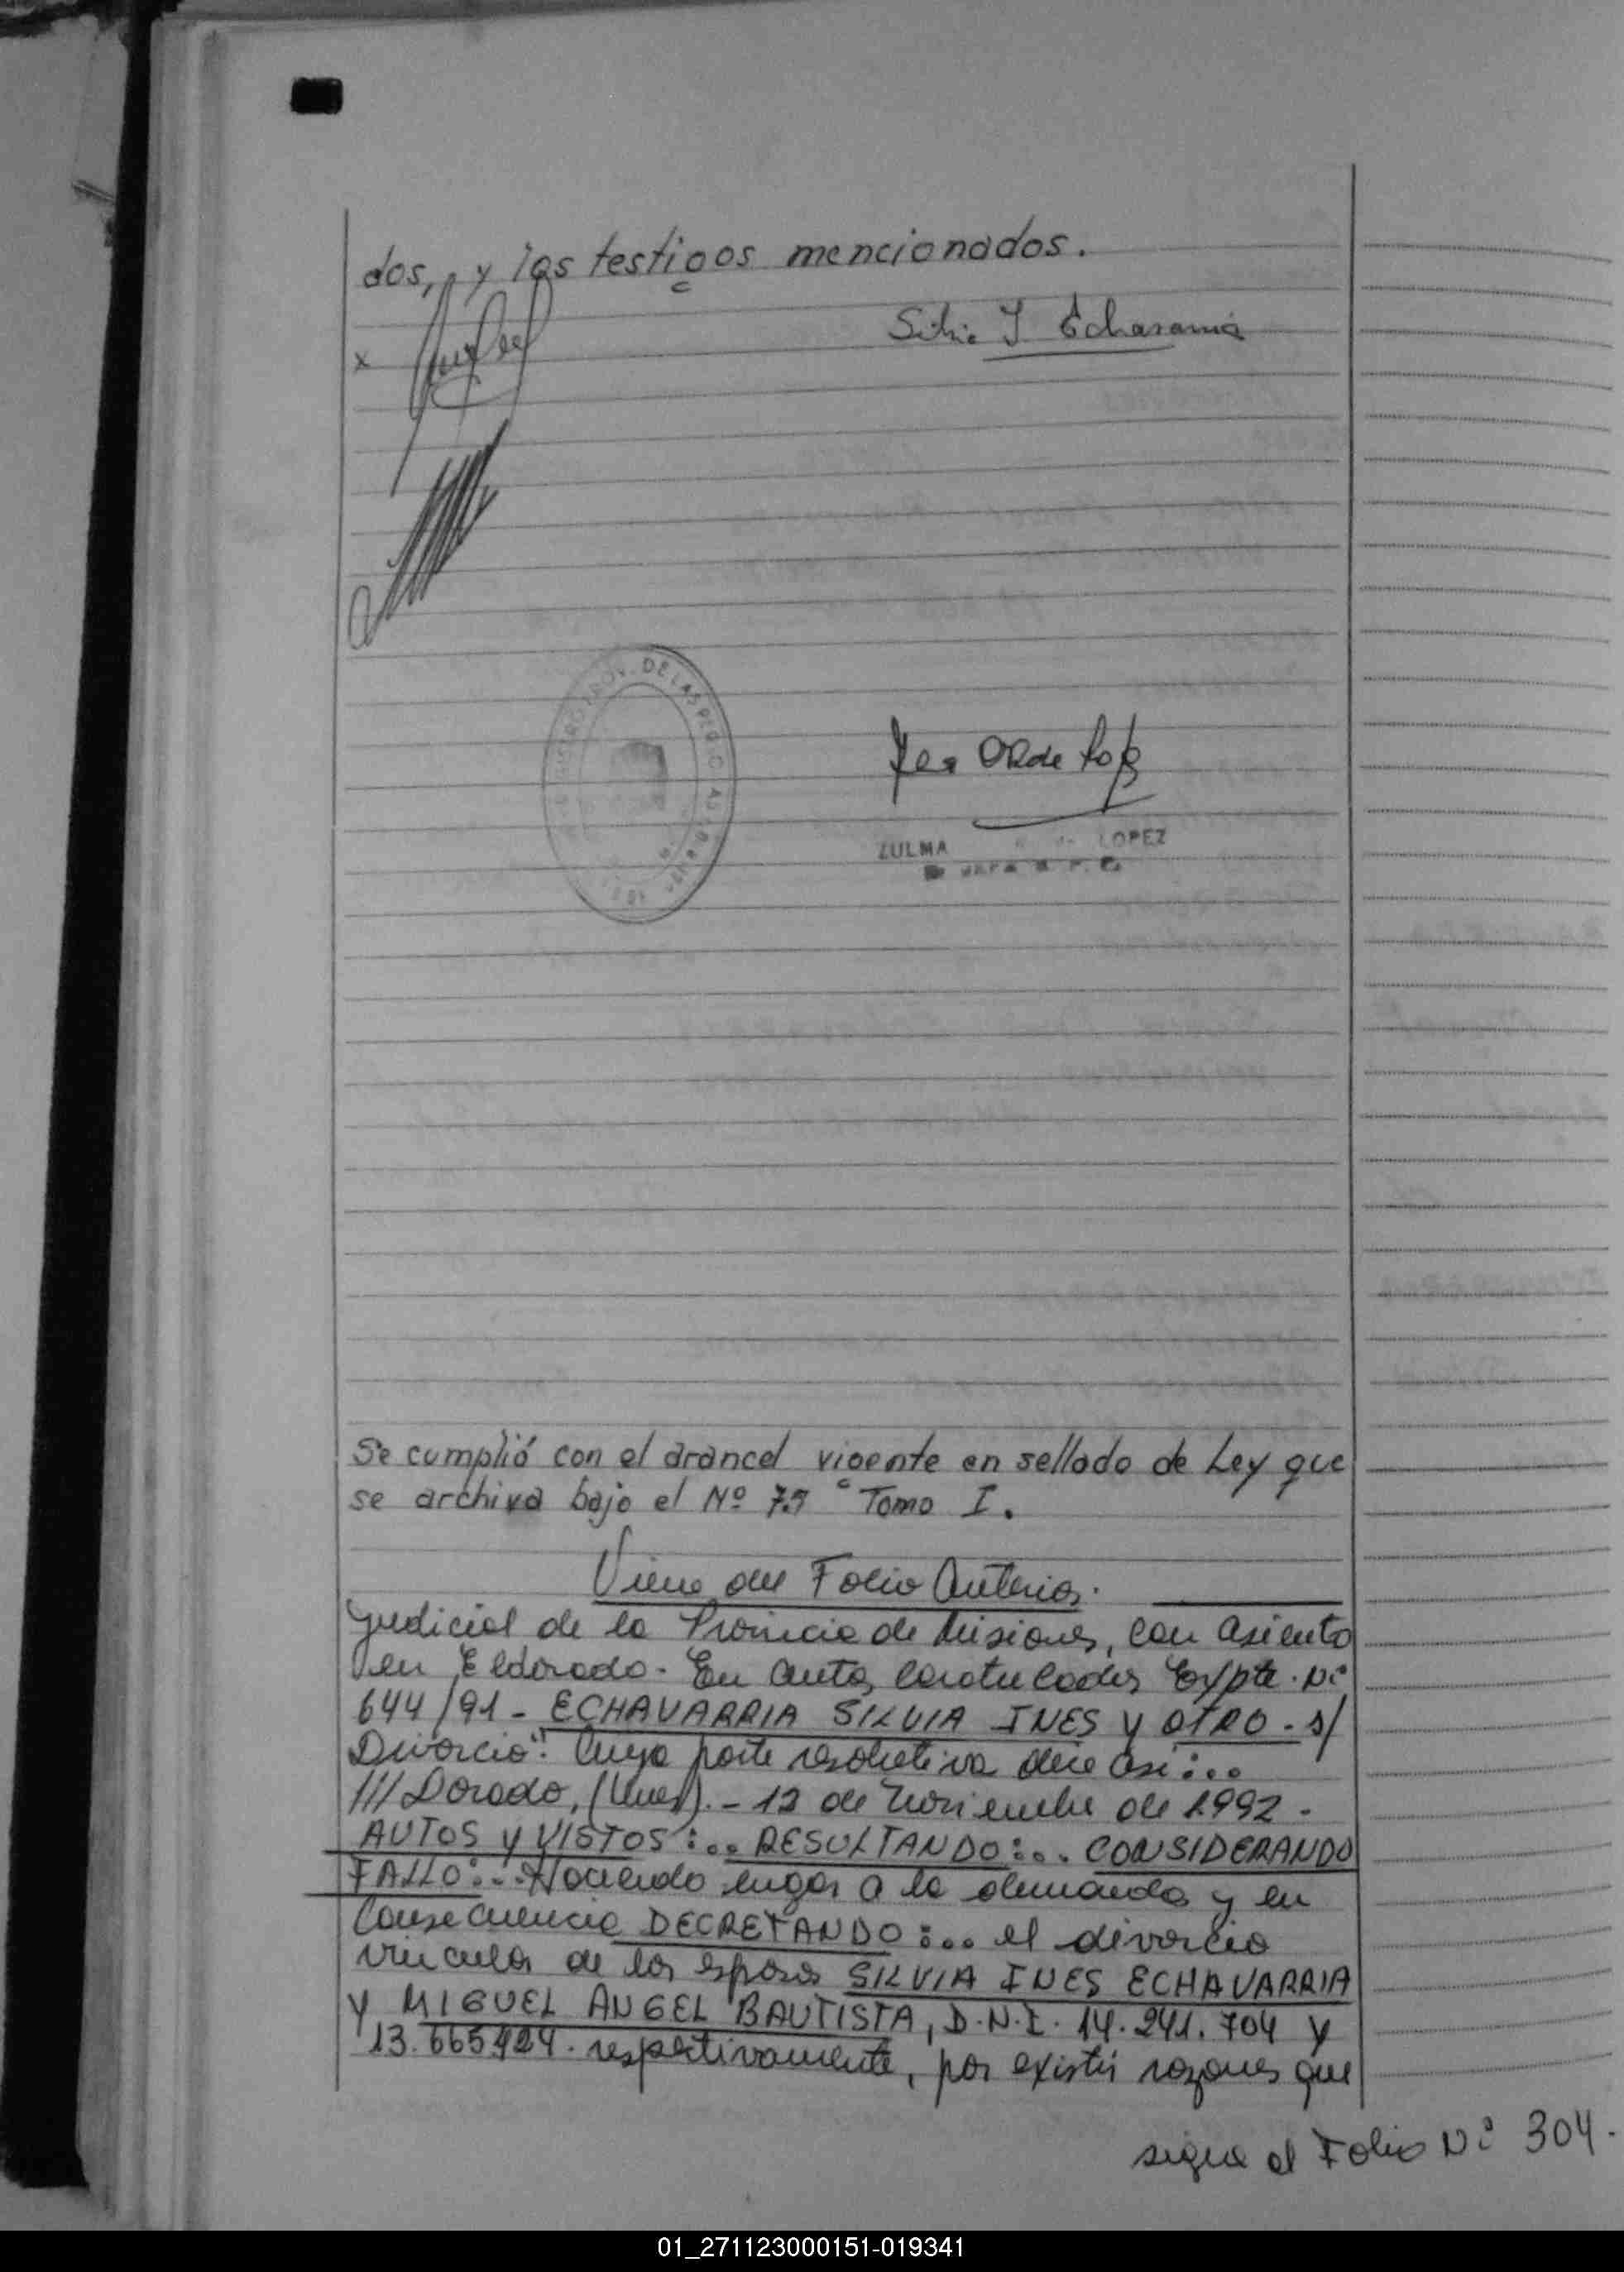 dos, y los testigos mencionados.
x
Silvia I Echavarria
PROV. DE LAS PER
ZULMA LOPEZ
JEFA R. P.
Se cumplió con el arancel vigente en sellado de Ley que
se archiva bajo el Nº 79 Tomo I.
Viene del Folio Anterior.
Judicial de la Provincia de Misiones, con asiento
en Eldorado. En autos caratulados Expte. Nº
644/91 - ECHAVARRIA SILVIA INES y OTRO - s/
Divorcio". Cuya parte resolutiva dice así:...
///Dorado, (Mnes). - 12 de Noviembre de 1992 -
AUTOS y VISTOS:... RESULTANDO:... CONSIDERANDO
FALLO:... Haciendo lugar a la demanda y en
Consecuencia DECRETANDO:... el divorcio
vincular de los esposos SILVIA INES ECHAVARRIA
y MIGUEL ANGEL BAUTISTA, D.N.I. 14.241.704 y
13.665424. respectivamente, por existir razones que
sigue el Folio Nº 304.
01_271123000151-019341